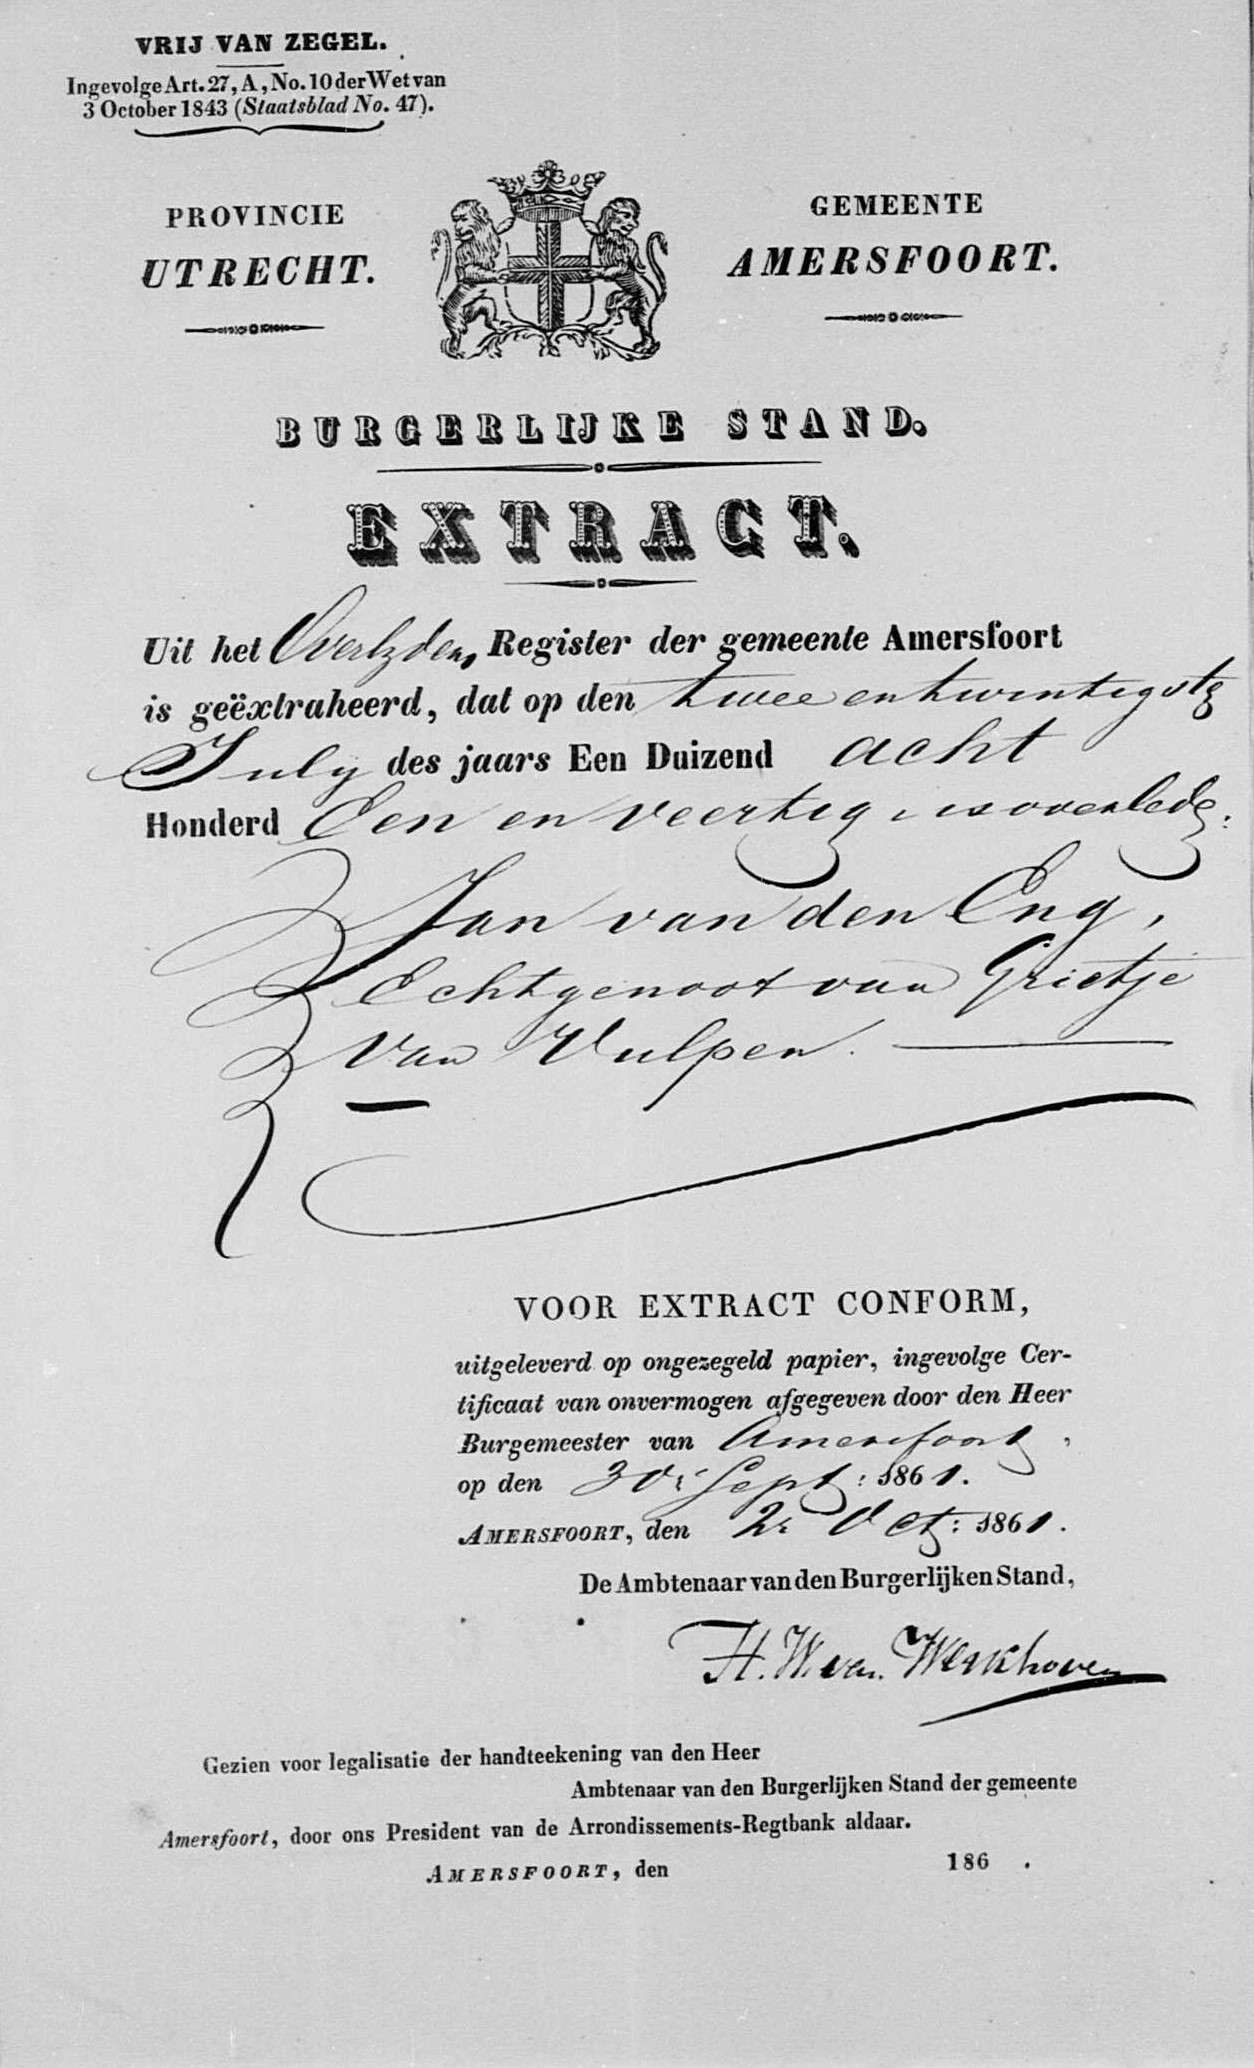 VRIJ VAN ZEGEL.
Ingevolge Art. 27, A, No. 10 der Wet van
3 October 1843 (Staatsblad No. 47).
PROVINCIE
UTRECHT.
GEMEENTE
AMERSFOORT.
BURGERLIJKE STAND.
EXTRACT.
Uit het Overlyden Register der gemeente Amersfoort
is geëxtraheerd, dat op den twee en twintigste
July des jaars Een Duizend acht
Honderd Een en veertig, is overlede:
Jan van den Eng,
Echtgenoot van Grietje
van Vulpen.
VOOR EXTRACT CONFORM,
uitgeleverd op ongezegeld papier, ingevolge Cer-
tificaat van onvermogen afgegeven door den Heer
Burgemeester van Amersfoort,
op den 30r Sept: 1861.
AMERSFOORT, den 2r Oct: 1861.
De Ambtenaar van den Burgerlijken Stand,
H. W. van Werkhoven
Gezien voor legalisatie der handteekening van den Heer
Ambtenaar van den Burgerlijken Stand der gemeente
Amersfoort, door ons President van de Arrondissements-Regtbank aldaar.
AMERSFOORT, den 186 .